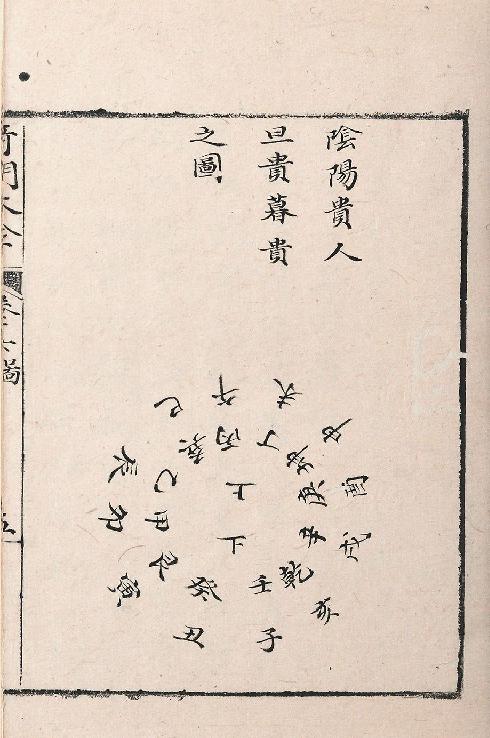 陰陽貴人
旦貴暮貴
之圖
巳
午
未
申
酉
戌
亥
子
丑
寅
卯
辰
巽
丙
丁
坤
庚
辛
乾
壬
癸
艮
甲
乙
上
上